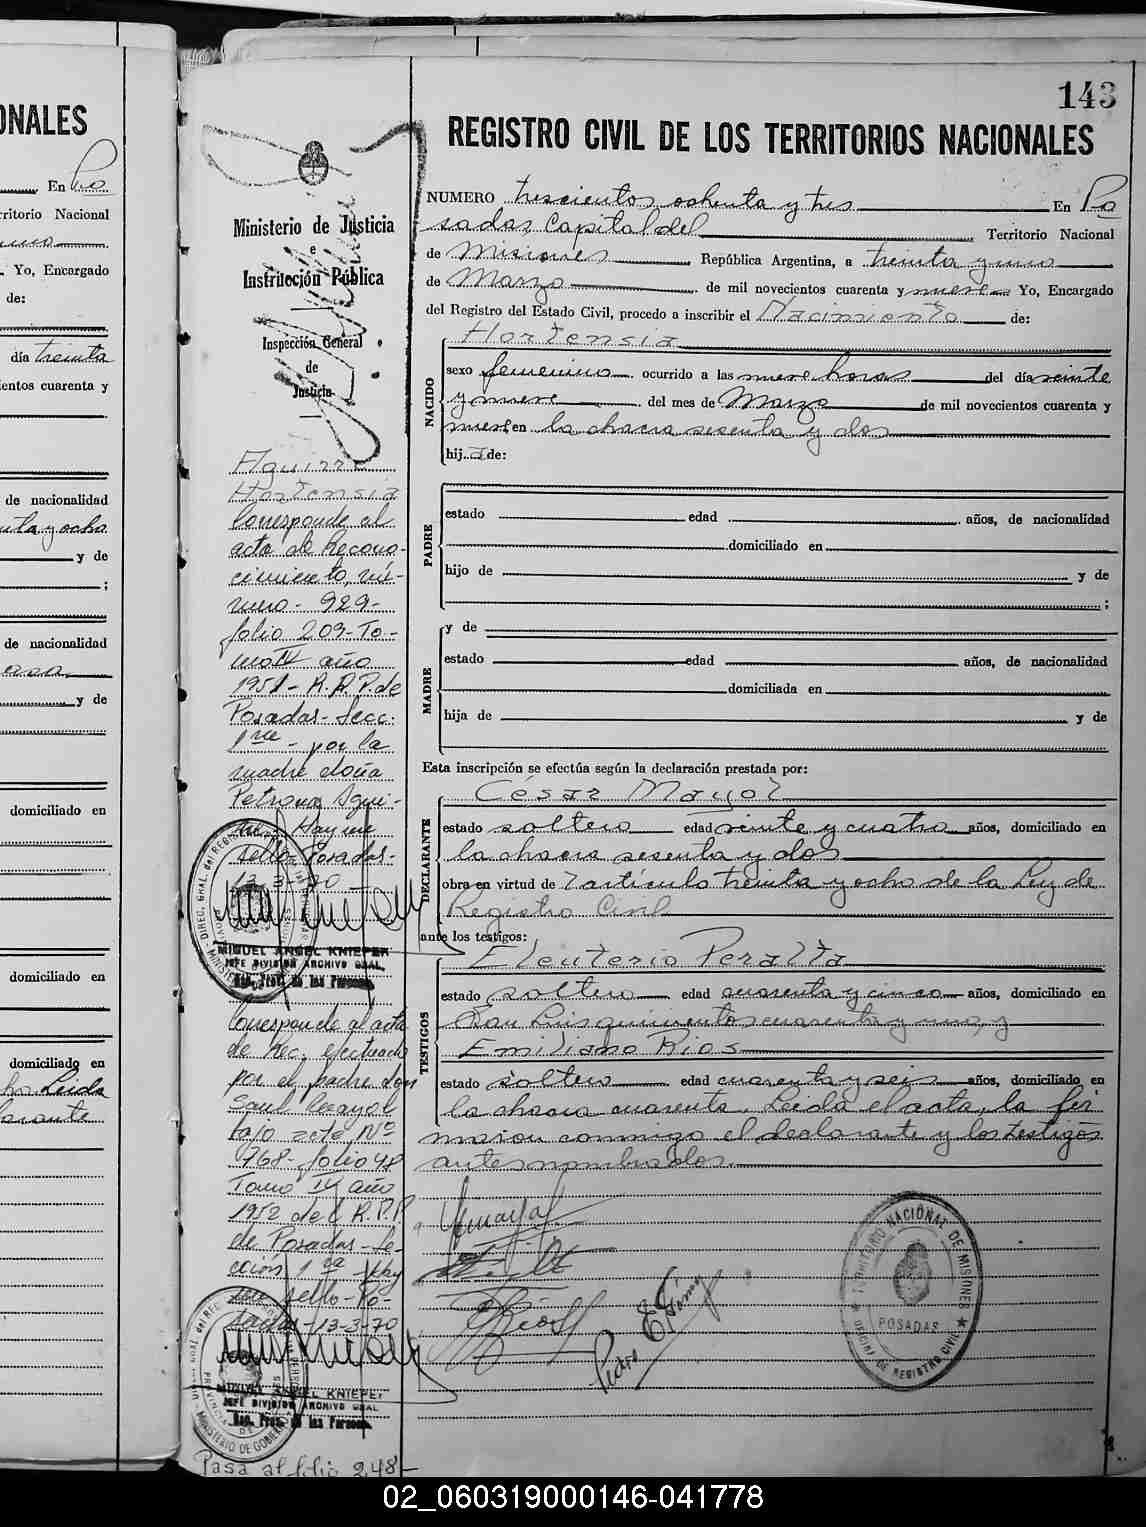 ONALES
En Po
ritorio Nacional
Yo, Encargado
de:
día treinta
entos cuarenta y
de nacionalidad
y ocho
y de
;
de nacionalidad
y de
domiciliado en
domiciliado en
domiciliado en
Leida
143
REGISTRO CIVIL DE LOS TERRITORIOS NACIONALES
Ministerio de Justicia
e
Instrucción Pública
Inspección General
de
Justicia
NUMERO trescientos ochenta y tres En Po
sadas Capital del Territorio Nacional
de Misiones República Argentina, a treinta y uno
de Marzo de mil novecientos cuarenta y nueve Yo, Encargado
del Registro del Estado Civil, procedo a inscribir el Nacimiento de:
NACIDO
Hortensia
sexo femenino ocurrido a las nueve horas del día veinte
y nueve del mes de Marzo de mil novecientos cuarenta y
nueve en la chacra sesenta y dos
hija de:
PADRE
estado edad años, de nacionalidad
domiciliado en
hijo de y de
;
MADRE
y de
estado edad años, de nacionalidad
domiciliada en
hija de y de
Esta inscripción se efectúa según la declaración prestada por:
DECLARANTE
César Mayol
estado soltero edad veinte y cuatro años, domiciliado en
la chacra sesenta y dos
obra en virtud de artículo treinta y ocho de la Ley de
Registro Civil
ante los testigos:
TESTIGOS
Eleuterio Peralta
estado soltero edad cuarenta y cinco años, domiciliado en
San Luis quinientos cuarenta y uno, y
Emiliano Rios
estado soltero edad cuarenta y seis años, domiciliado en
la chacra cuarenta. Leida el acta, la fir
maron conmigo el declarante y los testigos
antes nombrados.
Aguirre
Hortensia
Corresponde al
acta de Recono-
cimiento, nú-
mero - 929 -
folio 209 - To-
mo IV año
1951 - R.P.P. de
Posadas - Secc.
1ra - por la
madre doña
Petrona Agui-
rre. Hay un
sello. Posadas -
13-3-70
DIREC. GRAL. del REGISTRO
MIGUEL ANGEL KNIEPER
JEFE DIVISION ARCHIVO GRAL.
Reg. Prov. de las Personas
Corresponde al acta
de Rec. efectuado
por el padre don
Saul Mayol
bajo acta Nº
768 - folio 48
Tomo IV año
1952 del R.P.P.
de Posadas - Se-
cción 1ra - Hay
un sello - Po-
sadas - 13-3-70
MIGUEL ANGEL KNIEPER
JEFE DIVISION ARCHIVO GRAL.
Reg. Prov. de las Personas
MINISTERIO DE GOBIERNO
Pasa al folio 248 -
TERRITORIO NACIONAL DE MISIONES
POSADAS
OFICINA DE REGISTRO CIVIL
02_060319000146-041778